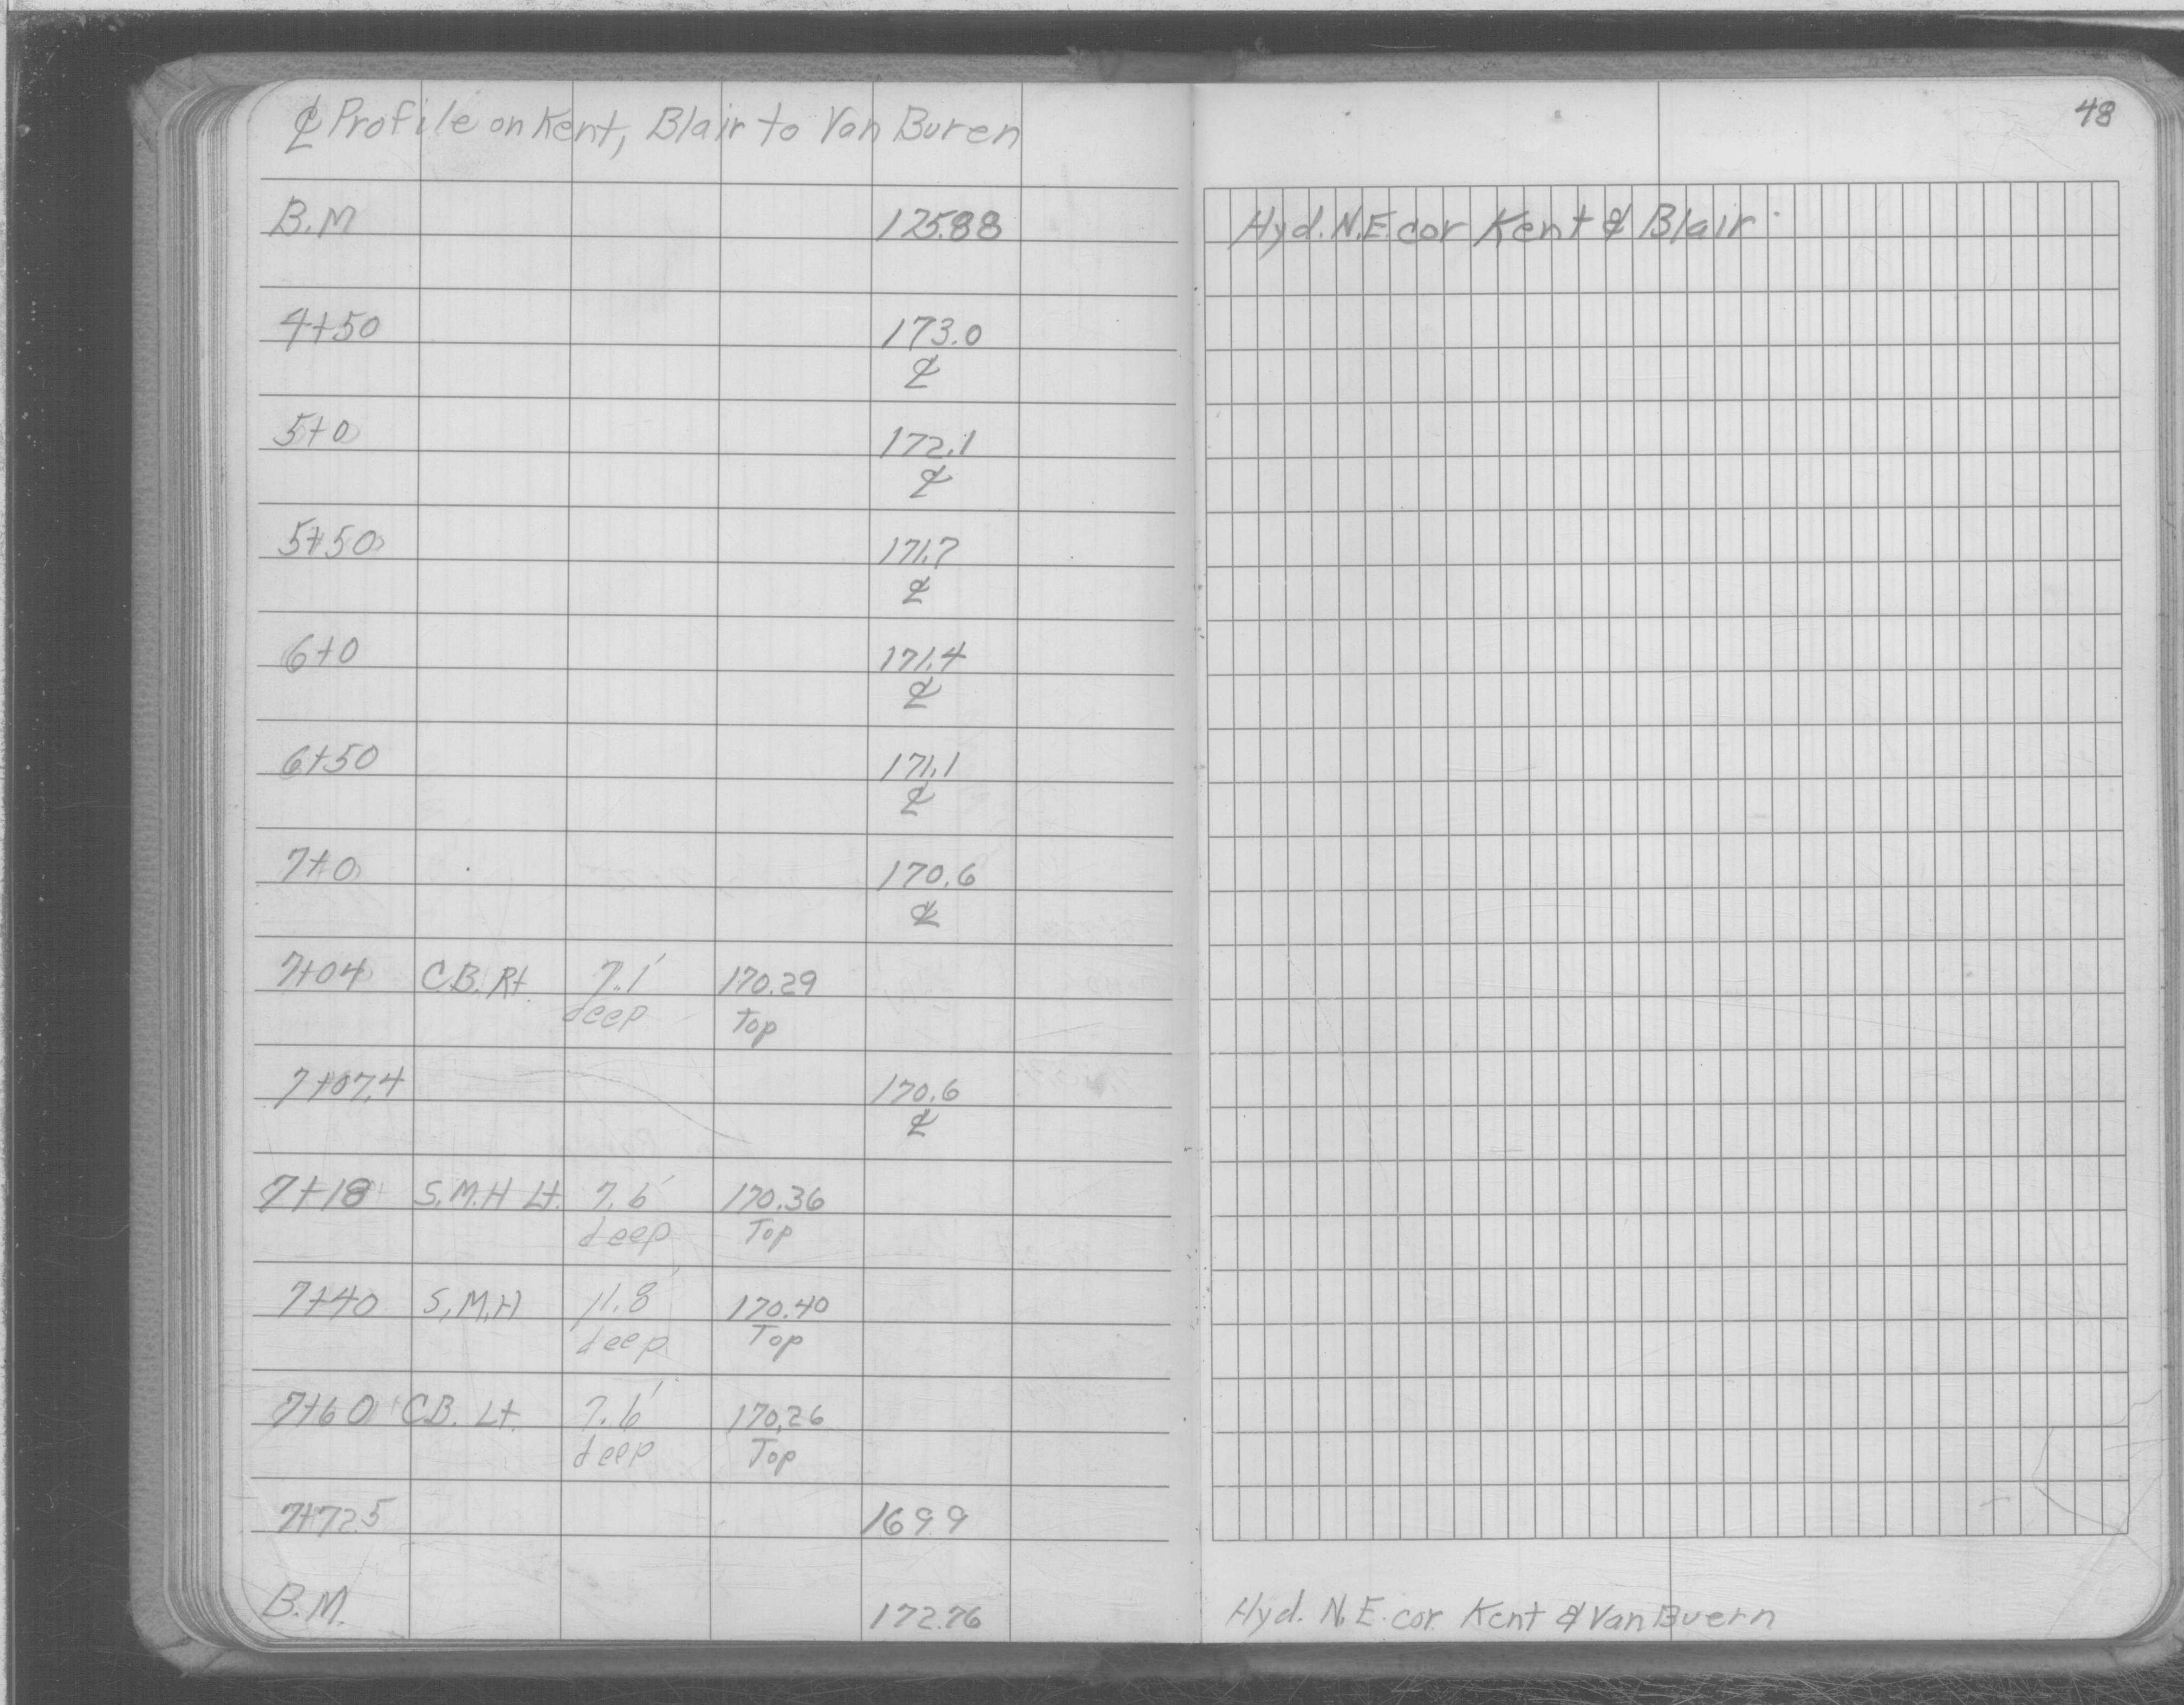 ℄ Profile on Kent, Blair to Van Buren
48
B.M 175.88 Hyd. N.E. cor Kent & Blair
4+50 173.0
℄
5+0 172.1
℄
5+50 171.7
℄
6+0 171.4
℄
6+50 171.1
℄
7+0 170.6
℄
7+04 C.B. Rt. 7.1' 170.29
deep Top
7+07.4 170.6
℄
7+18 S.M.H Lt. 7.6' 170.36
deep Top
7+40 S.M.H 11.8' 170.40
deep Top
7+60 C.B. Lt. 7.6' 170.26
deep Top
7+72.5 169.9
B.M. 172.76 Hyd. N.E. cor. Kent & Van Buern